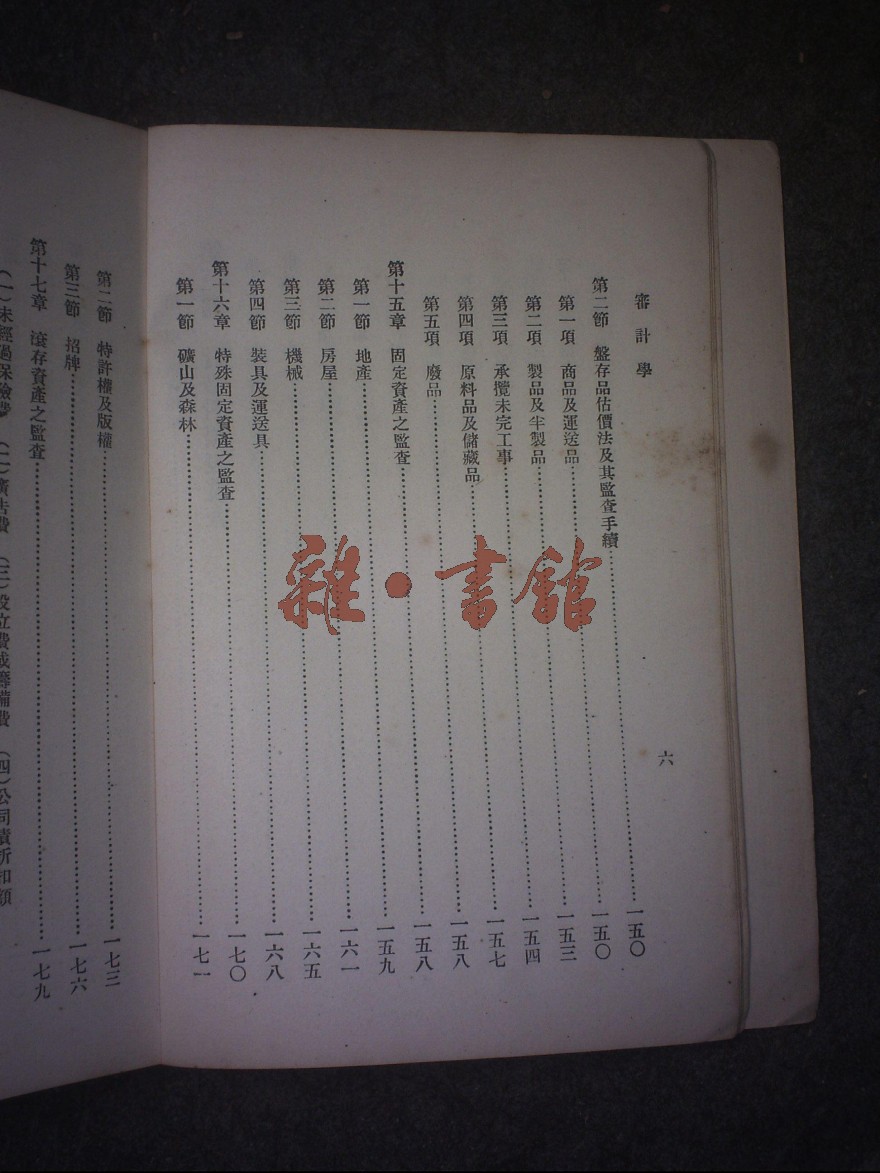 審計學
六
第二節 盤存品估價法及其監查手續……一五〇
第一項 商品及運送品……一五〇
第二項 製品及半製品……一五三
第三項 承攬未完工事……一五四
第四項 原料品及儲藏品……一五七
第五項 廢品……一五八
第十五章 固定資產之監查……一五八
第一節 地產……一五九
第二節 房屋……一六一
第三節 機械……一六五
第四節 裝具及運送具……一六八
第十六章 特殊固定資產之監查……一七〇
第一節 礦山及森林……一七一
第二節 特許權及版權……一七三
第三節 招牌……一七六
第十七章 滾存資產之監查……一七九
(一)未經過保險費 (二)廣告費 (三)設立費或籌備費 (四)公司債折扣額
雜·書館